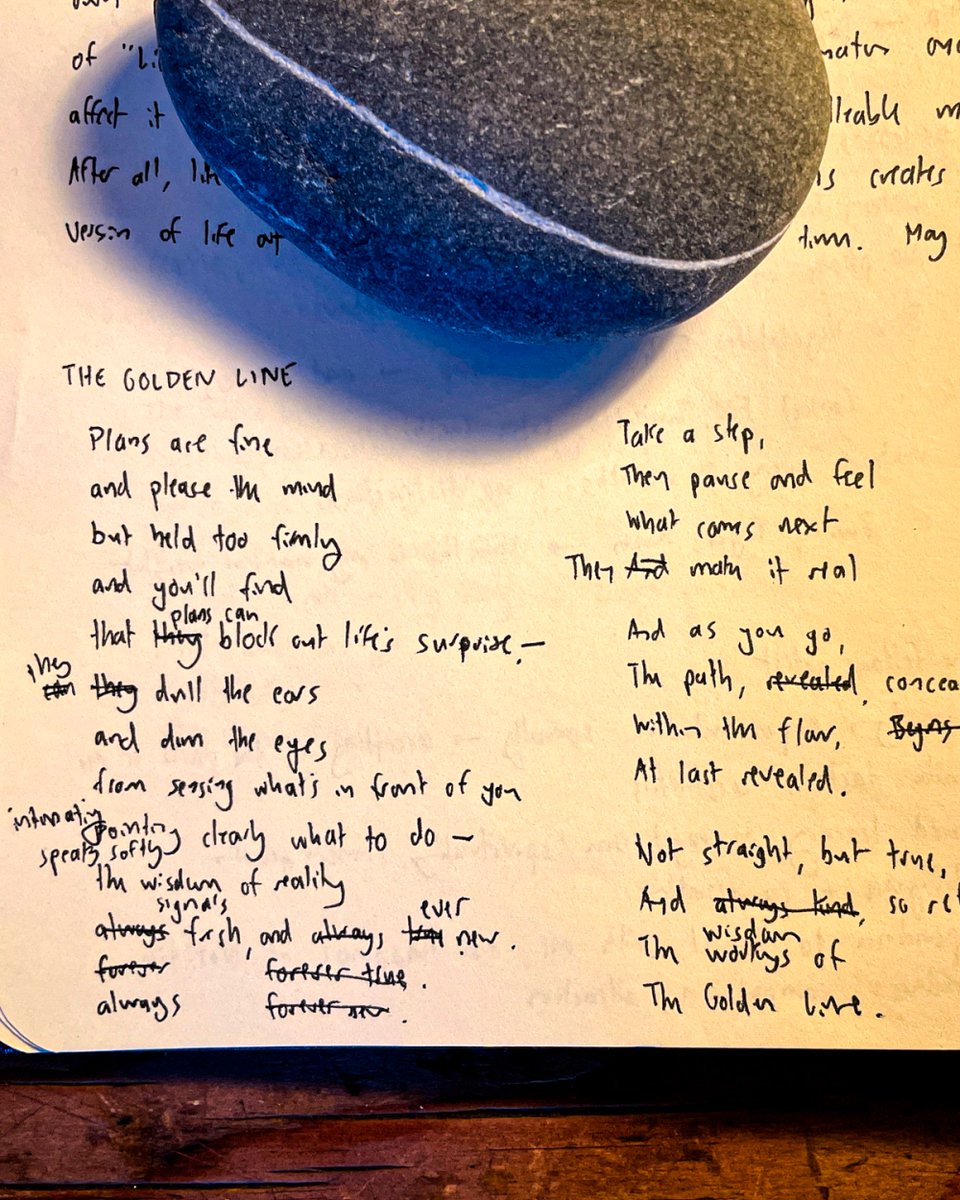 of "Li
affect it
After all, life
version of life at
creates
time. May
THE GOLDEN LINE
Plans are fine
and please the mind
but held too firmly
and you'll find
plans can
that they block out life's surprise.—
they
can they dull the ears
and dim the eyes
from sensing what's in front of you
intimating
pointing clearly what to do —
speaks softly
the wisdom of reality
signals ever
always fresh, and always new.
forever forever true.
always forever new.
Take a step,
Then pause and feel
What comes next
Then And make it real
And as you go,
The path, revealed, concea
Within the flow, Begins
At last revealed.
Not straight, but true,
And always kind, so
wisdom
The workings of
The Golden Line.